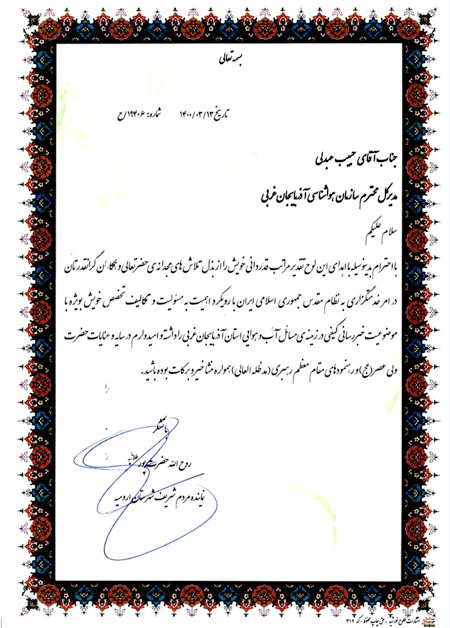 بسمه تعالی
تاریخ ۱۴۰۰/۰۳/۱۳ شماره: ۱۹۴۰۶/ح
جناب آقای حبیب عبدلی
مدیرکل محترم سازمان هواشناسی آذربایجان غربی
سلام علیکم
با احترام بدینوسیله با اهدای این لوح تقدیر مراتب قدردانی خویش را از بذل تلاش های مجدانه ی حضرتعالی و همکاران گرانقدرتان
در امر خدمتگزاری به نظام مقدس جمهوری اسلامی ایران با رویکرد اهمیت به مسئولیت و تکالیف تخصص خویش بویژه با
موضوعیت خبررسانی کیفی در زمینه ی مسائل آب و هوایی استان آذربایجان غربی را داشته و امیدوارم در سایه و عنایات حضرت
ولی عصر(عج) و رهنمودهای مقام معظم رهبری (مدظله العالی) همواره منشا خیر و برکات بوده باشید.
با تشکر
روح الله حضرت پور
نماینده مردم شریف شهرستان ارومیه